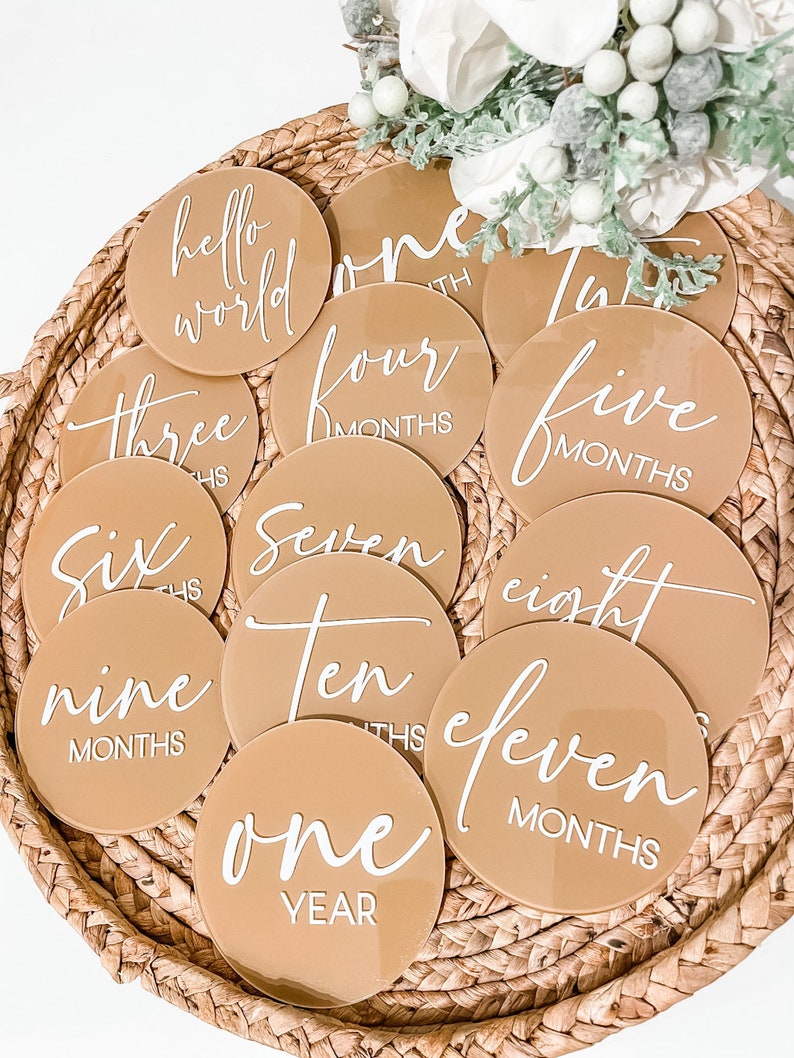 hello
world
one
MONTH
Two
three
MONTHS
four
MONTHS
five
MONTHS
six
MONTHS
seven
eight
nine
MONTHS
Ten
MONTHS
eleven
MONTHS
one
YEAR